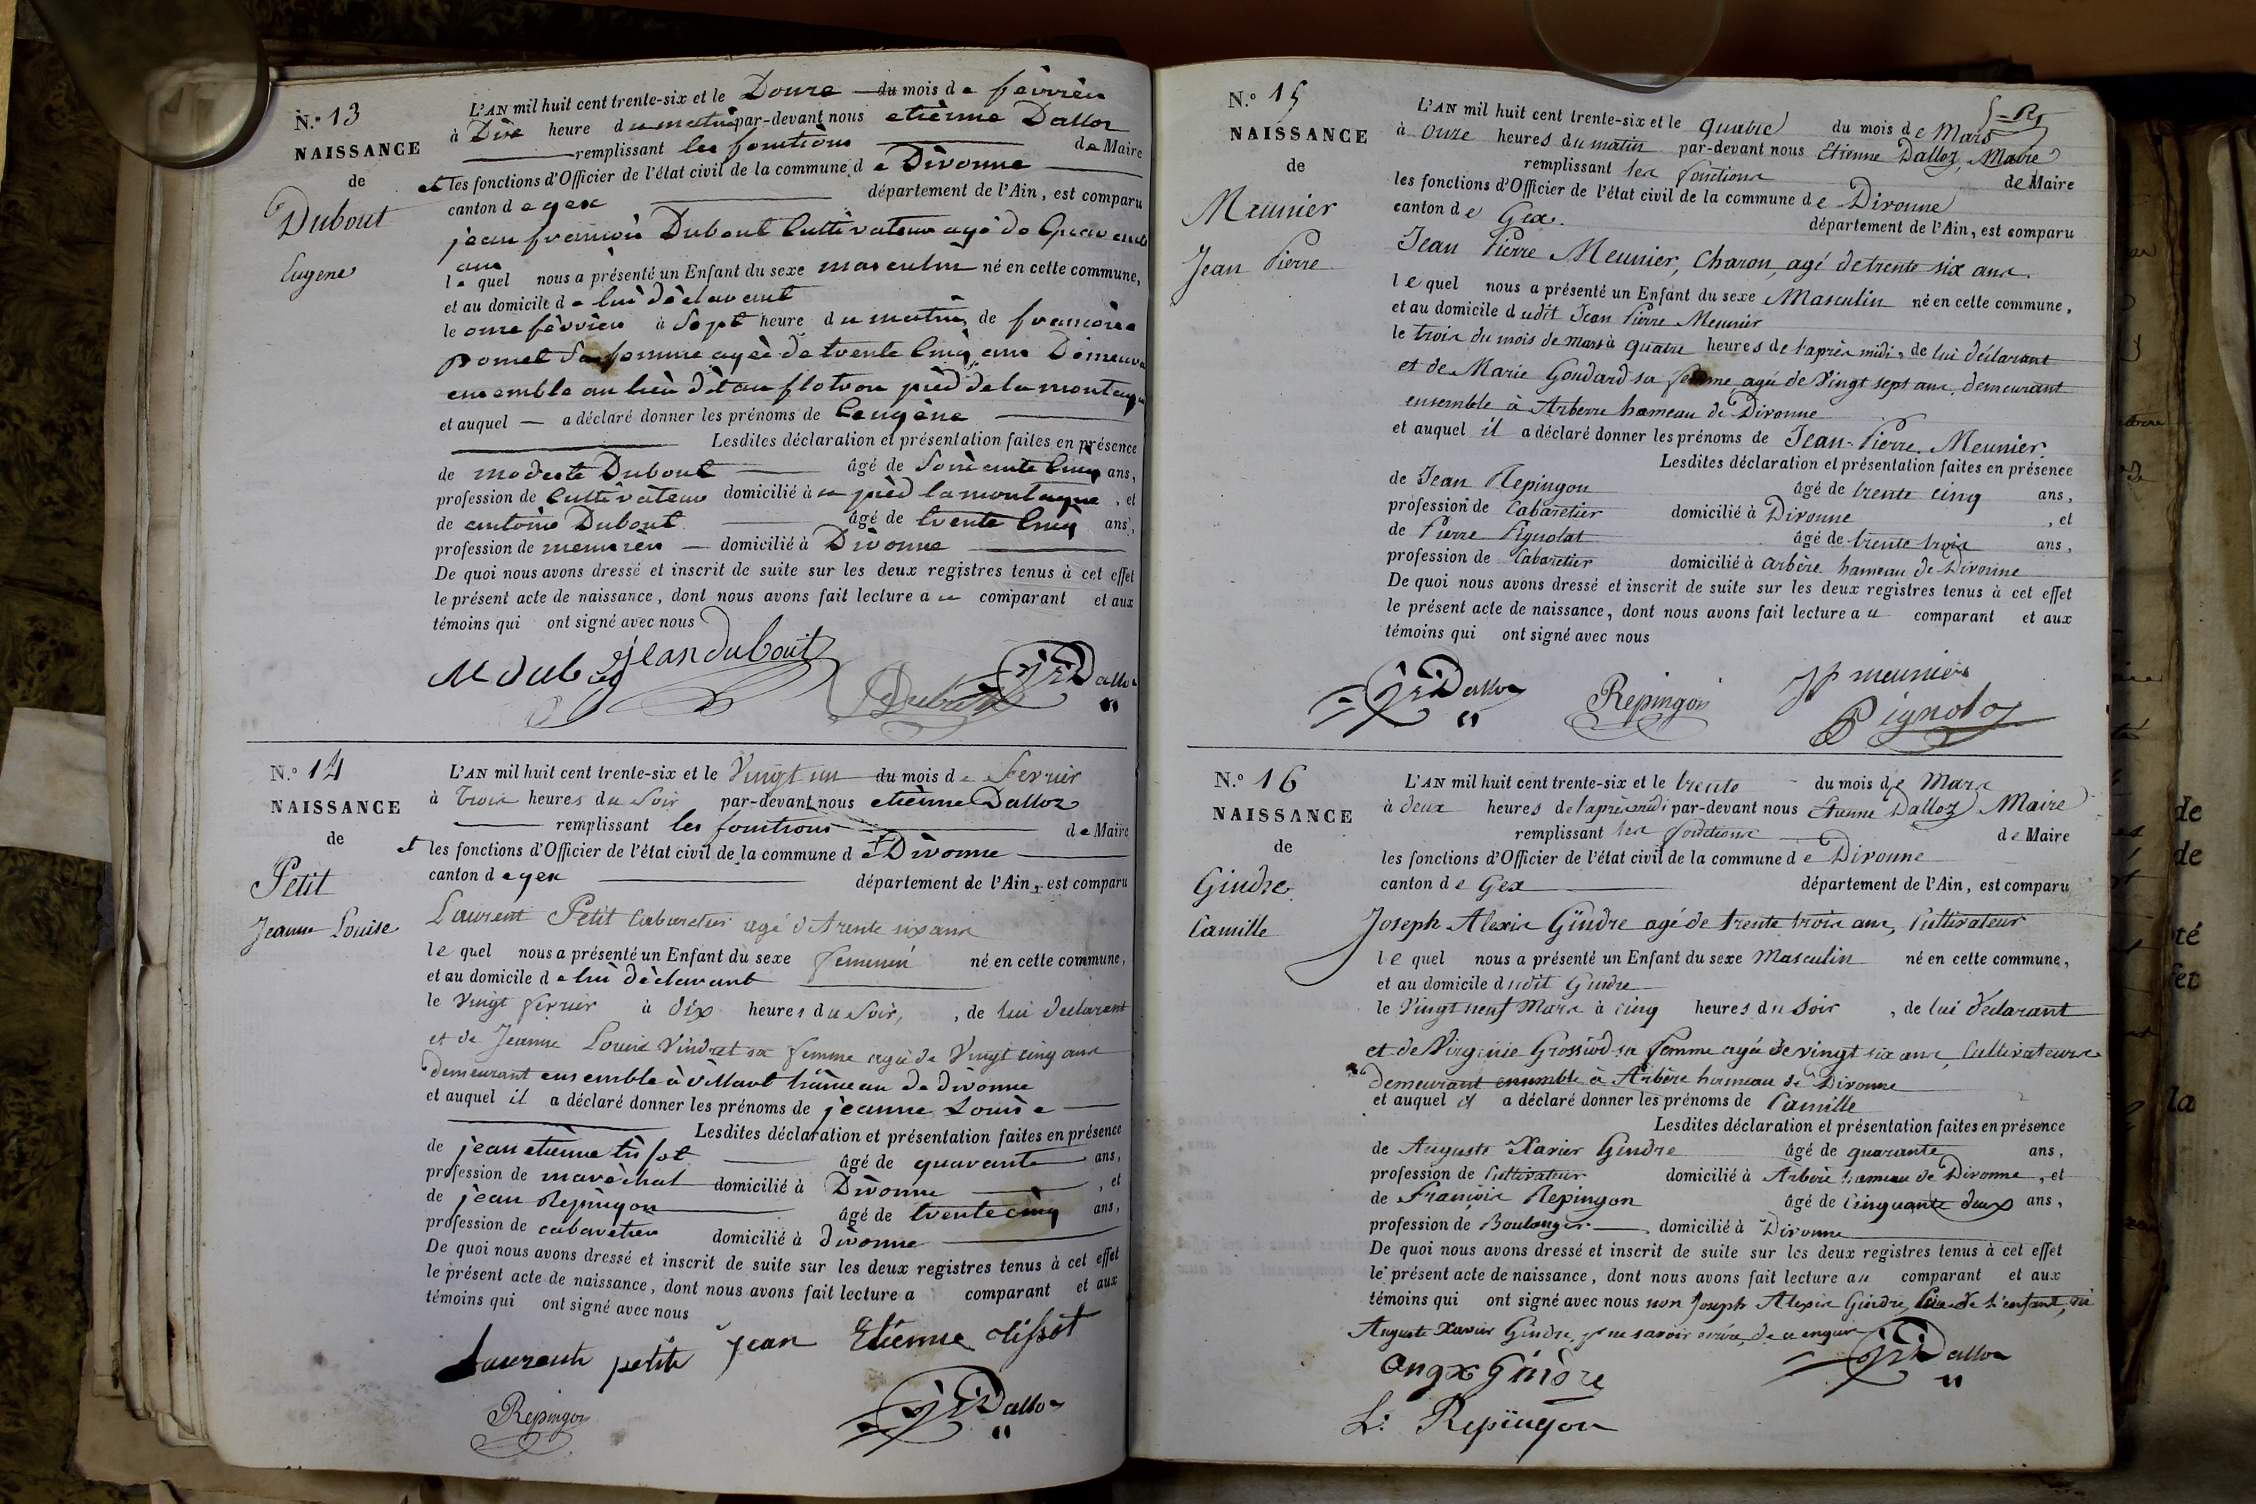 N.º 13
NAISSANCE
de
Dubout
Eugène
L'AN mil huit cent trente-six et le Douze du mois de fèvrièr
à Dix heure du matin par-devant nous etiènne Dalloz
remplissant les fonctions de Maire
et les fonctions d'Officier de l'état civil de la commune de Divonne
canton de gex département de l'Ain, est comparu
jean françois Dubout Cultivateur agé de Quarente
ans
le quel nous a présenté un Enfant du sexe masculin né en cette commune,
et au domicile de lui dèclarent
le onze fèvrièr à Sept heure du matin, de françoise
ponet Sa femme agèe de trente Cinq ans Demeurant
ensemble au lieu dit au flotron pièd de la montagne
et auquel a déclaré donner les prénoms de Eugène
Lesdites déclaration et présentation faites en présence
de modeste Dubout âgé de Soixante Cinq ans,
profession de Cultivateur domicilié à pièd la montagne, et
de antoine Dubout âgé de trente Cinq ans,
profession de menuisièr domicilié à Divonne
De quoi nous avons dressé et inscrit de suite sur les deux registres tenus à cet effet
le présent acte de naissance, dont nous avons fait lecture au comparant et aux
témoins qui ont signé avec nous
jean dubout
Dalloz
N.º 14
NAISSANCE
de
Petit
Jeanne Louise
L'AN mil huit cent trente-six et le Vingt un du mois de Fevrier
à Trois heures du Soir par-devant nous etiènne Dalloz
remplissant les fonctions de Maire
et les fonctions d'Officier de l'état civil de la commune de Divonne
canton de gex département de l'Ain, est comparu
Laurent Petit Cabaretier agé de trente six ans
le quel nous a présenté un Enfant du sexe femenin né en cette commune,
et au domicile de lui dèclarent
le Vingt fevrier à dix heures du Soir, de lui declarant
et de Jeanne Louise Vindret sa femme agée de Vingt cinq ans
demeurant ensemble à villard hâmeau de divonne
et auquel il a déclaré donner les prénoms de jeanne Louise
Lesdites déclaration et présentation faites en présence
de jean etiènne tissot âgé de quarante ans,
profession de marèchal domicilié à Divonne, et
de jean Repingon âgé de trente cinq ans,
profession de cabaretier domicilié à divonne
De quoi nous avons dressé et inscrit de suite sur les deux registres tenus à cet effet
le présent acte de naissance, dont nous avons fait lecture a comparant et aux
témoins qui ont signé avec nous
Laurent petit jean Etienne tissot
Repingon
Dalloz
N.º 15
NAISSANCE
de
Meunier
Jean Pierre
L'AN mil huit cent trente-six et le quatre du mois de Mars
à onze heures du matin par-devant nous Etienne Dalloz, Maire
remplissant les fonctions de Maire
les fonctions d'Officier de l'état civil de la commune de Divonne
canton de Gex. département de l'Ain, est comparu
Jean Pierre Meunier, Charon, agé de trente six ans.
le quel nous a présenté un Enfant du sexe Masculin né en cette commune,
et au domicile dudit Jean Pierre Meunier
le trois du mois de Mars à quatre heures de l'après midi, de lui déclarant
et de Marie Goudard sa femme, agée de Vingt sept ans, demeurant
ensemble à Arberre hameau de Divonne
et auquel il a déclaré donner les prénoms de Jean-Pierre Meunier.
Lesdites déclaration et présentation faites en présence
de Jean Repingon âgé de trente cinq ans,
profession de Cabaretier domicilié à Divonne, et
de Pierre Pignolat âgé de trente trois ans,
profession de Cabaretier domicilié à arbère hameau de Divonne
De quoi nous avons dressé et inscrit de suite sur les deux registres tenus à cet effet
le présent acte de naissance, dont nous avons fait lecture au comparant et aux
témoins qui ont signé avec nous
Dalloz Repingon JP meunier
Pignolat
N.º 16
NAISSANCE
de
Gindre
Camille
L'AN mil huit cent trente-six et le trente du mois de Mars
à deux heures de l'après midi par-devant nous Etienne Dalloz Maire
remplissant les fonctions de Maire
les fonctions d'Officier de l'état civil de la commune de Divonne
canton de Gex département de l'Ain, est comparu
Joseph Alexis Gindre agé de trente trois ans, Cultivateur
le quel nous a présenté un Enfant du sexe Masculin né en cette commune,
et au domicile dudit Gindre
le Vingt neuf Mars à cinq heures du Soir, de lui déclarant
et de Virginie Grossiord sa femme agée de vingt six ans, Cultivateurs
demeurant ensemble à Arbère hameau de Divonne
et auquel il a déclaré donner les prénoms de Camille
Lesdites déclaration et présentation faites en présence
de Auguste Xavier Gindre âgé de quarante ans,
profession de Cultivateur domicilié à Arbère hameau de Divonne, et
de François Repingon âgé de Cinquante deux ans,
profession de Boulanger domicilié à Divonne
De quoi nous avons dressé et inscrit de suite sur les deux registres tenus à cet effet
le présent acte de naissance, dont nous avons fait lecture au comparant et aux
témoins qui ont signé avec nous non Joseph Alexis Gindre, Père de l'enfant, ni
Auguste Xavier Gindre, ne savoir écrire, de ce enquis
Dalloz
augx Gindre
Repingon
de
de
té
fet
la